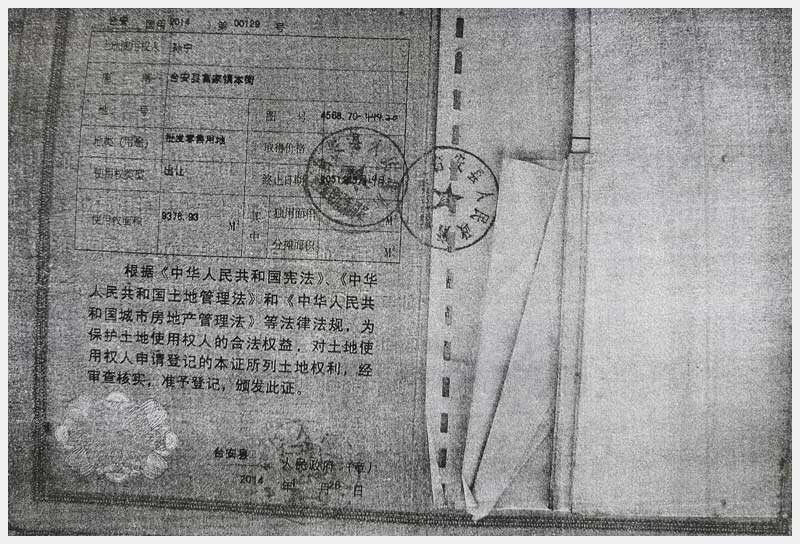 台安 国用 2014 第 00129 号
土地使用权人 孙宁
座 落 台安县富家镇本街
地 号 图 号
地类（用途） 批发零售用地 取得价格
使用权类型 出让 终止日期
使用权面积 9376.93 M² 其中 独用面积 M²
分摊面积 M²
根据《中华人民共和国宪法》、《中华
人民共和国土地管理法》和《中华人民共
和国城市房地产管理法》等法律法规，为
保护土地使用权人的合法权益，对土地使
用权人申请登记的本证所列土地权利，经
审查核实，准予登记，颁发此证。
台安县 人民政府（章）
2014 年 1 月 26 日
台安县人民政府